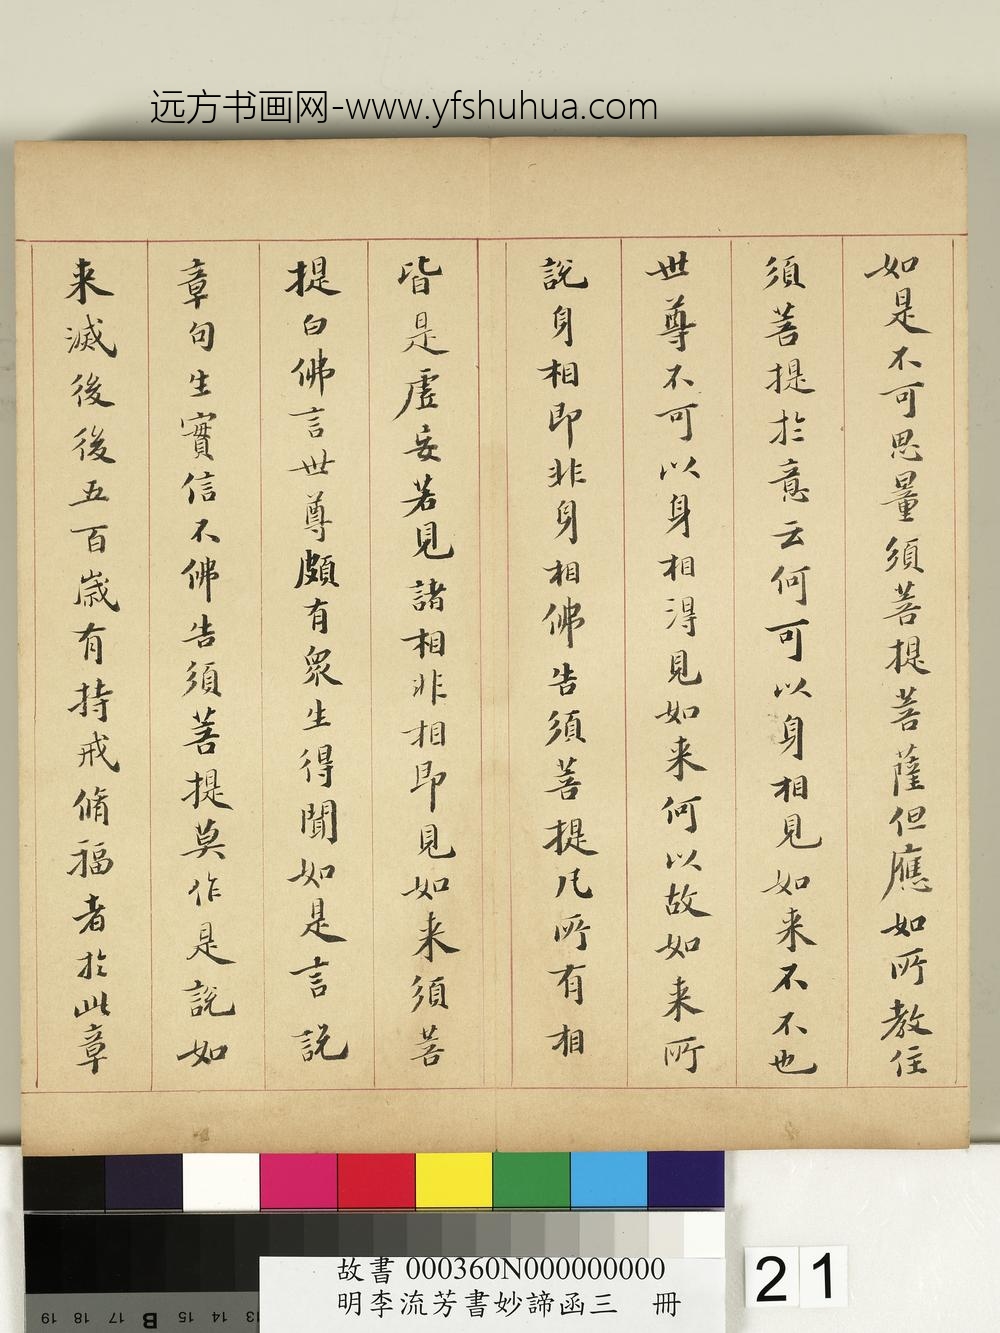 远方书画网-www.yfshuhua.com
如是不可思量須菩提菩薩但應如所教住
須菩提於意云何可以身相見如来不不也
世尊不可以身相得見如来何以故如来所
說身相即非身相佛告須菩提凡所有相
皆是虛妄若見諸相非相即見如来須菩
提白佛言世尊頗有衆生得聞如是言說
章句生實信不佛告須菩提莫作是說如
来滅後後五百歲有持戒脩福者於此章
故書 000360N000000000
明李流芳書妙諦函三 冊
21
19 18 17 B 15 14 13